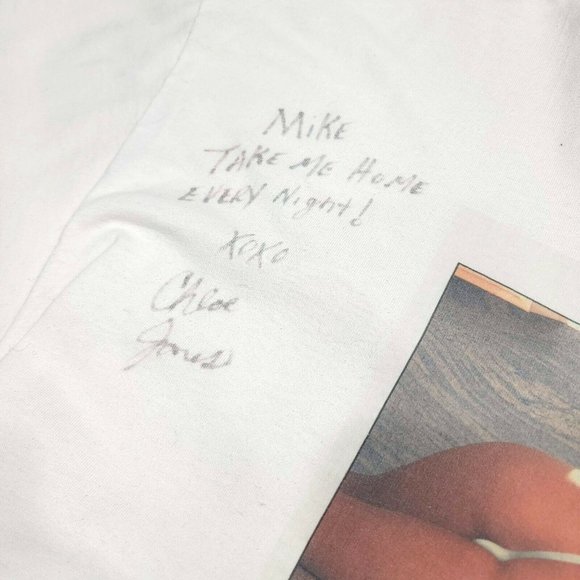 MiKE
TAKE ME HOME
EVERY Night!
XOXO
Chloe
Jones